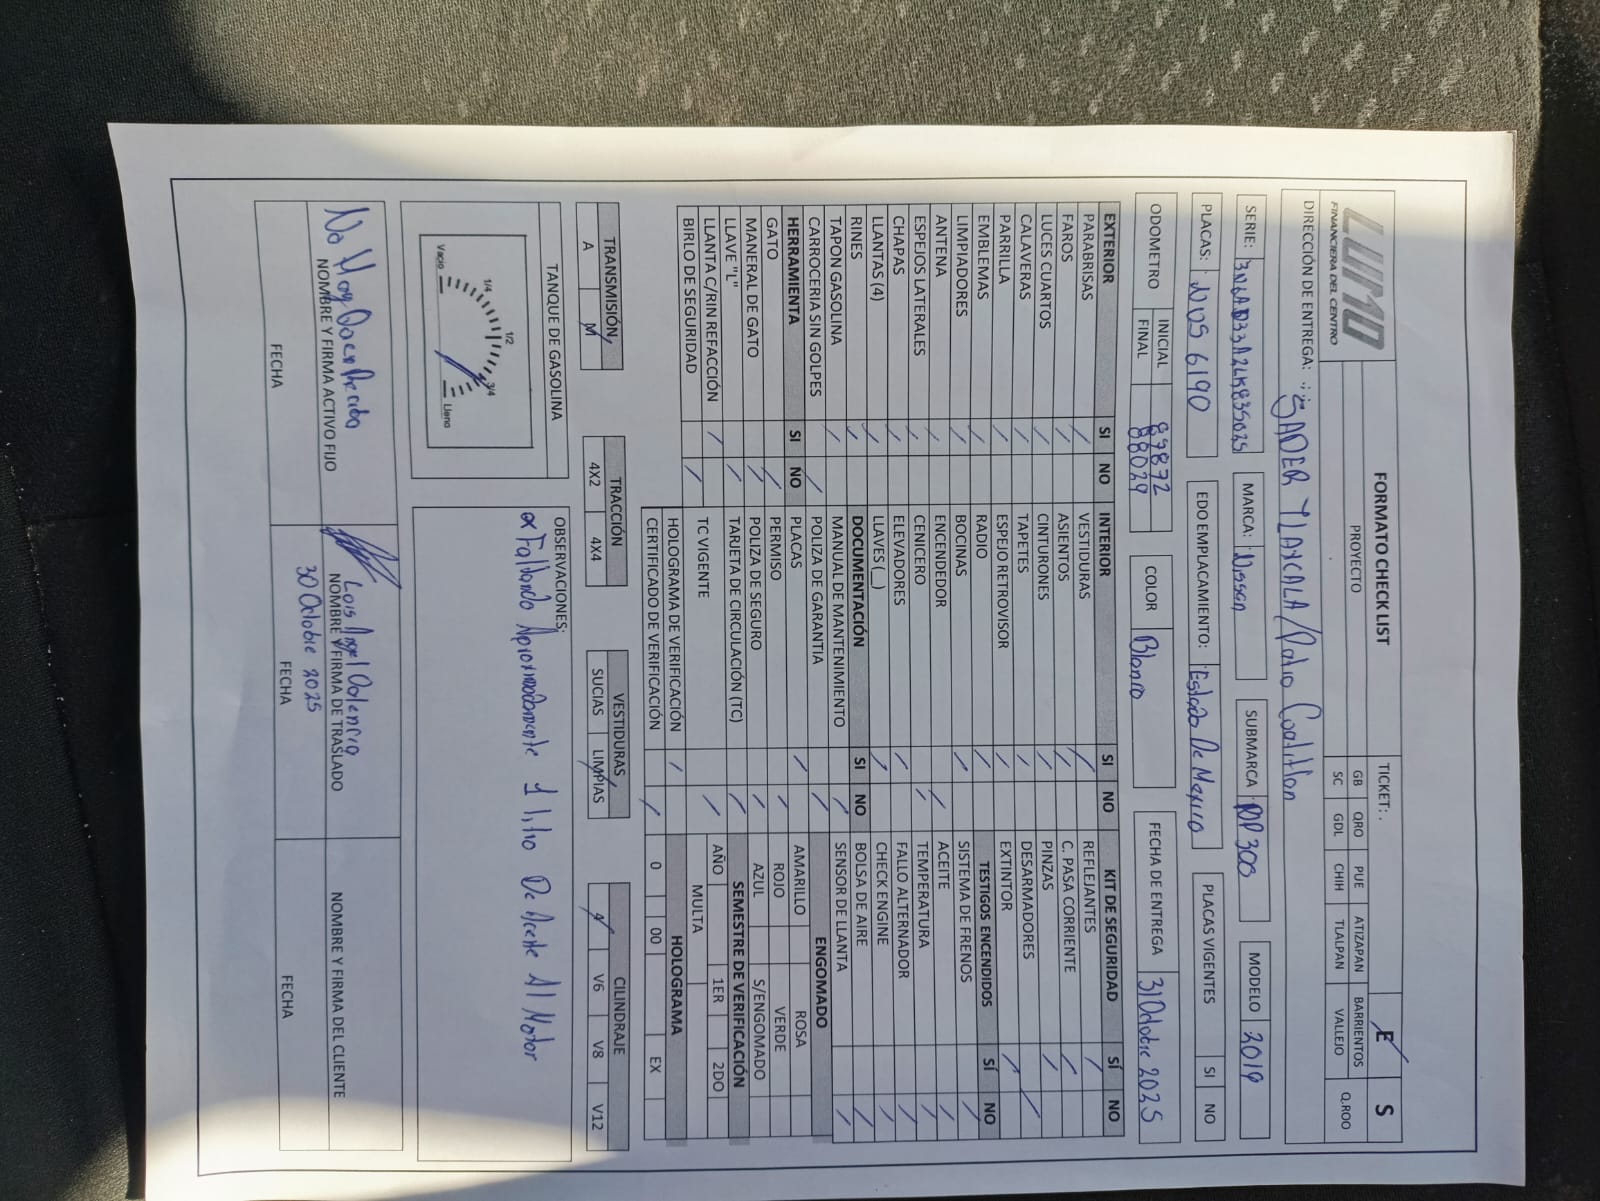 LUMO
FINANCIERA DEL CENTRO
FORMATO CHECK LIST
TICKET: .
E
S
PROYECTO
GB QRO PUE ATIZAPAN BARRIENTOS Q.ROO
SC GDL CHIH TLALPAN VALLEJO
DIRECCIÓN DE ENTREGA: SADER TLAXCALA/Patio Coatitlan
SERIE: MARCA: Nissan SUBMARCA NP300 MODELO 2019
PLACAS: NOS 6190 EDO EMPLACAMIENTO: Estado De Mexico PLACAS VIGENTES SI NO
ODOMETRO INICIAL
FINAL 88029
COLOR Blanco FECHA DE ENTREGA 31 Octubre 2025
EXTERIOR SI NO
PARABRISAS
FAROS
LUCES CUARTOS
CALAVERAS
PARRILLA
EMBLEMAS
LIMPIADORES
ANTENA
ESPEJOS LATERALES
CHAPAS
LLANTAS (4)
RINES
TAPON GASOLINA
CARROCERIA SIN GOLPES
HERRAMIENTA SI NO
GATO
MANERAL DE GATO
LLAVE "L"
LLANTA C/RIN REFACCIÓN
BIRLO DE SEGURIDAD
INTERIOR SI NO
VESTIDURAS
ASIENTOS
CINTURONES
TAPETES
ESPEJO RETROVISOR
RADIO
BOCINAS
ENCENDEDOR
CENICERO
ELEVADORES
LLAVES (__)
DOCUMENTACIÓN SI NO
MANUAL DE MANTENIMIENTO
POLIZA DE GARANTIA
PLACAS
PERMISO
POLIZA DE SEGURO
TARJETA DE CIRCULACIÓN (TC)
TC VIGENTE
HOLOGRAMA DE VERIFICACIÓN
CERTIFICADO DE VERIFICACIÓN
KIT DE SEGURIDAD SÍ NO
REFLEJANTES
C. PASA CORRIENTE
PINZAS
DESARMADORES
EXTINTOR
TESTIGOS ENCENDIDOS SÍ NO
SISTEMA DE FRENOS
ACEITE
TEMPERATURA
FALLO ALTERNADOR
CHECK ENGINE
BOLSA DE AIRE
SENSOR DE LLANTA
ENGOMADO
AMARILLO ROSA
ROJO VERDE
AZUL S/ENGOMADO
SEMESTRE DE VERIFICACIÓN
AÑO 1ER 2DO
MULTA
HOLOGRAMA
0 00 EX
TRANSMISIÓN
A M
TRACCIÓN
4X2 4X4
VESTIDURAS
SUCIAS LIMPIAS
CILINDRAJE
4 V6 V8 V12
TANQUE DE GASOLINA
Vacio 1/4 1/2 3/4 Lleno
OBSERVACIONES:
Faltando Aproximadamente 1 litro De Aceite Al Motor
No Hay
NOMBRE Y FIRMA ACTIVO FIJO
FECHA
Luis Angel Valencia
NOMBRE Y FIRMA DE TRASLADO
30 Octubre 2025
FECHA
NOMBRE Y FIRMA DEL CLIENTE
FECHA